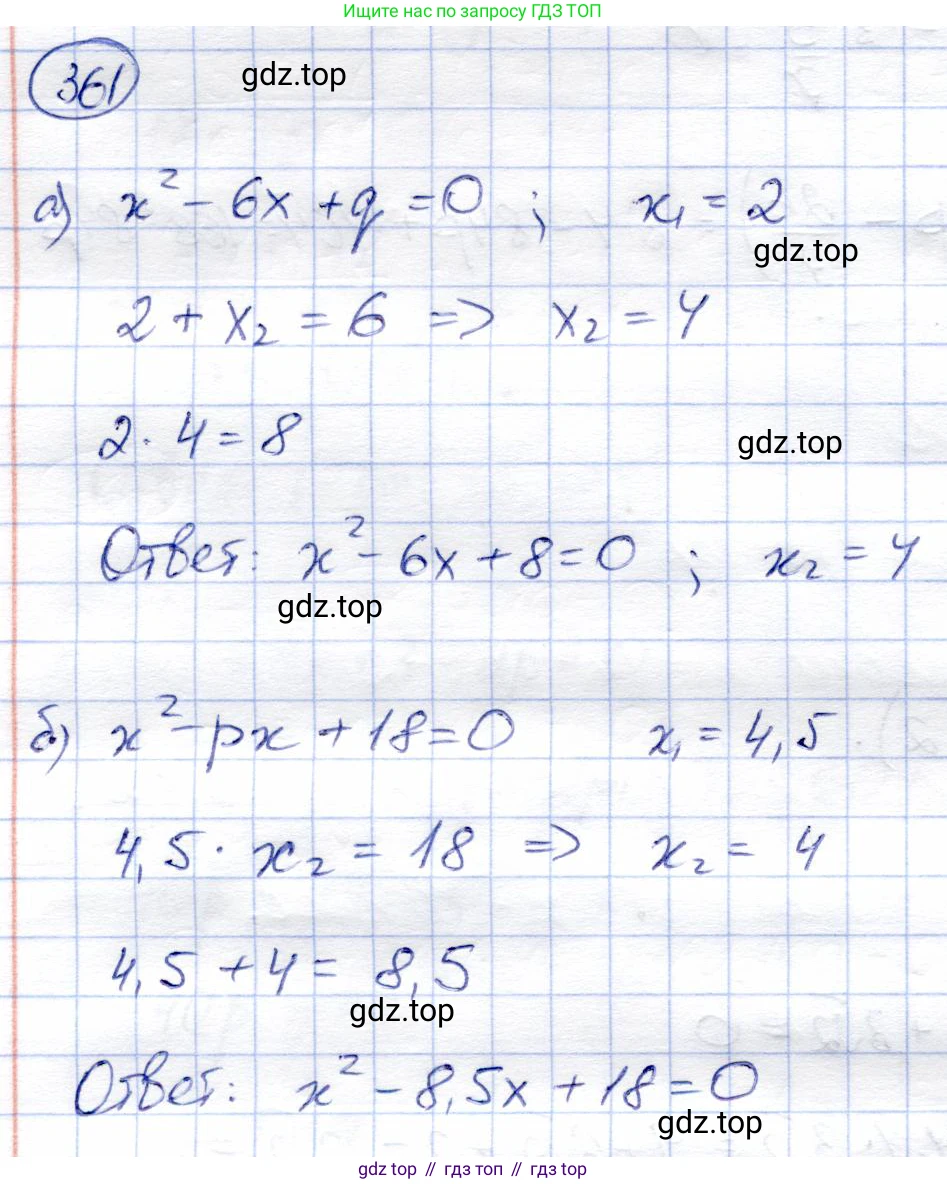 Ищите нас по запросу ГДЗ ТОП
361
gdz.top
а) x² - 6x + q = 0 ; x₁ = 2
gdz.top
2 + x₂ = 6 => x₂ = 4
2 · 4 = 8
gdz.top
Ответ: x² - 6x + 8 = 0 ; x₂ = 4
gdz.top
б) x² - px + 18 = 0 x₁ = 4,5
4,5 · x₂ = 18 => x₂ = 4
4,5 + 4 = 8,5
gdz.top
Ответ: x² - 8,5x + 18 = 0
gdz.top
gdz top // гдз топ // гдз top